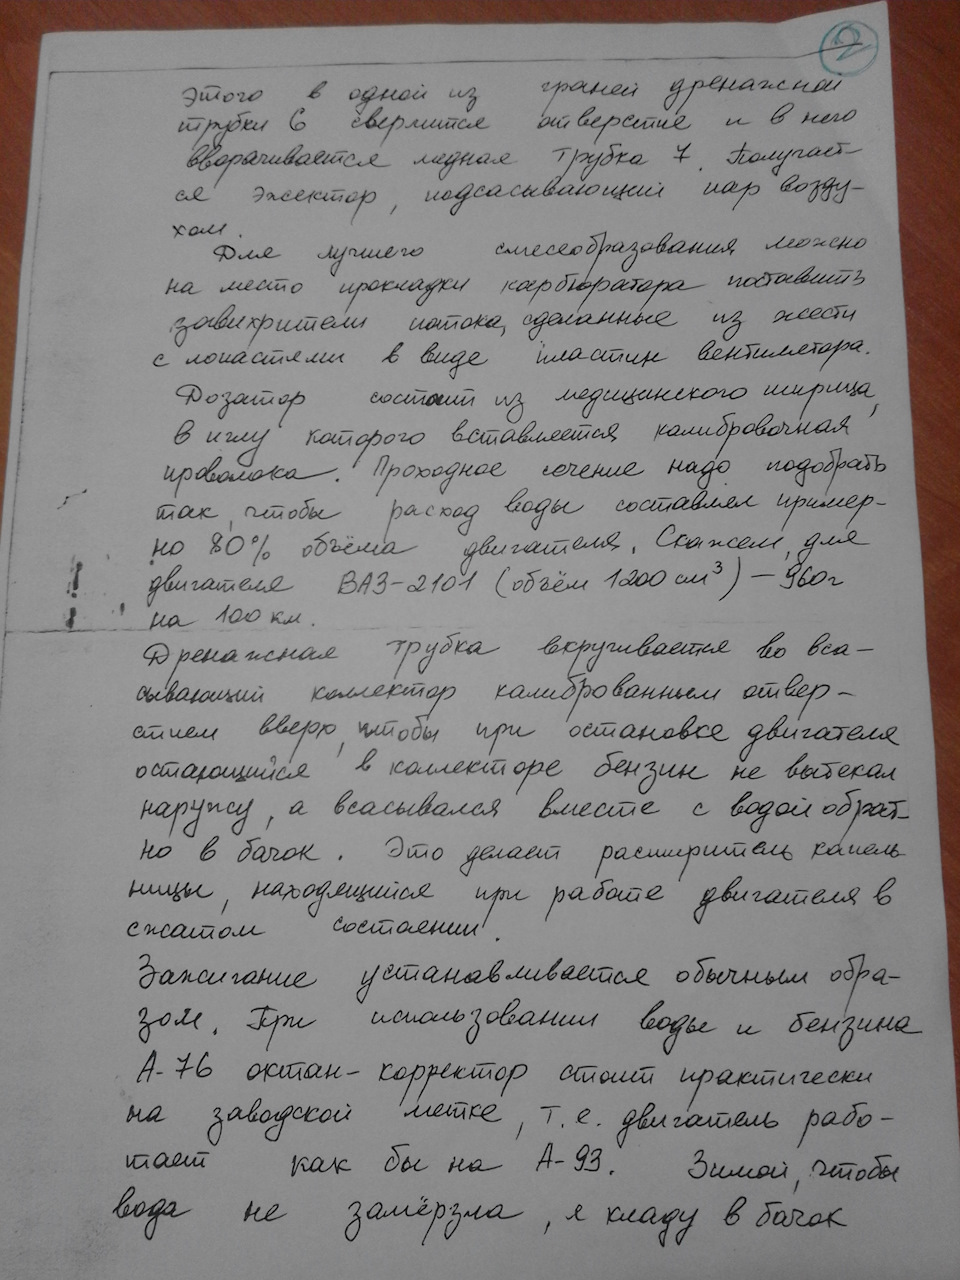 2
этого в одной из граней дренажной
трубки 6 сверлится отверстие и в него
вворачивается медная трубка 7. Получает-
ся эжектор, подсасывающий пар возду-
хом.
Для лучшего смесеобразования можно
на место прокладки карбюратора поставить
завихрители потока, сделанные из жести
с лопастями в виде пластин вентилятора.
Дозатор состоит из медицинского шприца,
в иглу которого вставляется калибровочная
проволока. Проходное сечение надо подобрать
так, чтобы расход воды составлял пример-
но 80% объёма двигателя. Скажем, для
двигателя ВАЗ-2101 (объём 1200 см³) – 960г
на 100 км.
Дренажная трубка вкручивается во вса-
сывающий коллектор калиброванным отвер-
стием вверх, чтобы при остановке двигателя
остающийся в коллекторе бензин не вытекал
наружу, а всасывался вместе с водой обрат-
но в бачок. Это делает расширитель капель
ницы, находящийся при работе двигателя в
сжатом состоянии.
Зажигание устанавливается обычным обра-
зом. При использовании воды и бензина
А-76 октан-корректор стоит практически
на заводской метке, т.е. двигатель рабо-
тает как бы на А-93. Зимой, чтобы
вода не замёрзла, я кладу в бачок